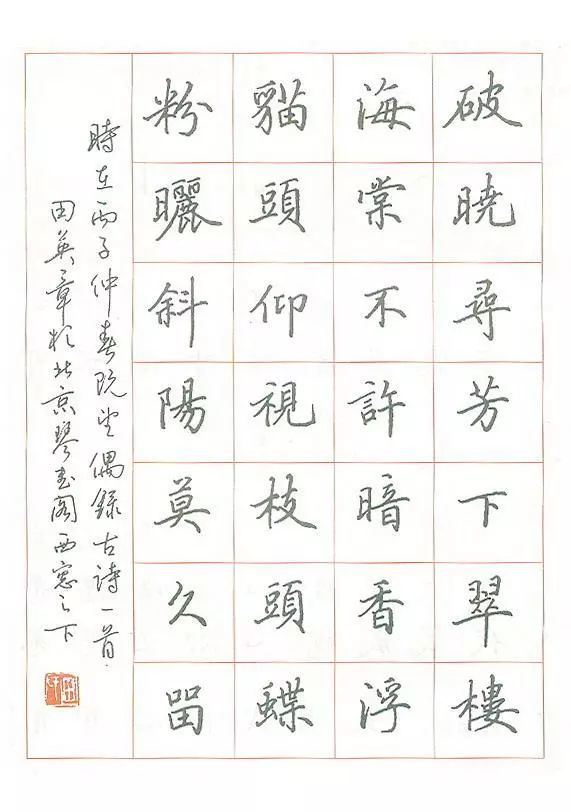 破曉尋芳下翠樓
海棠不許暗香浮
貓頭仰視枝頭蝶
粉曬斜陽莫久留
時在丙子仲春既望偶錄古詩一首
田英章於北京琴書閣西窓之下